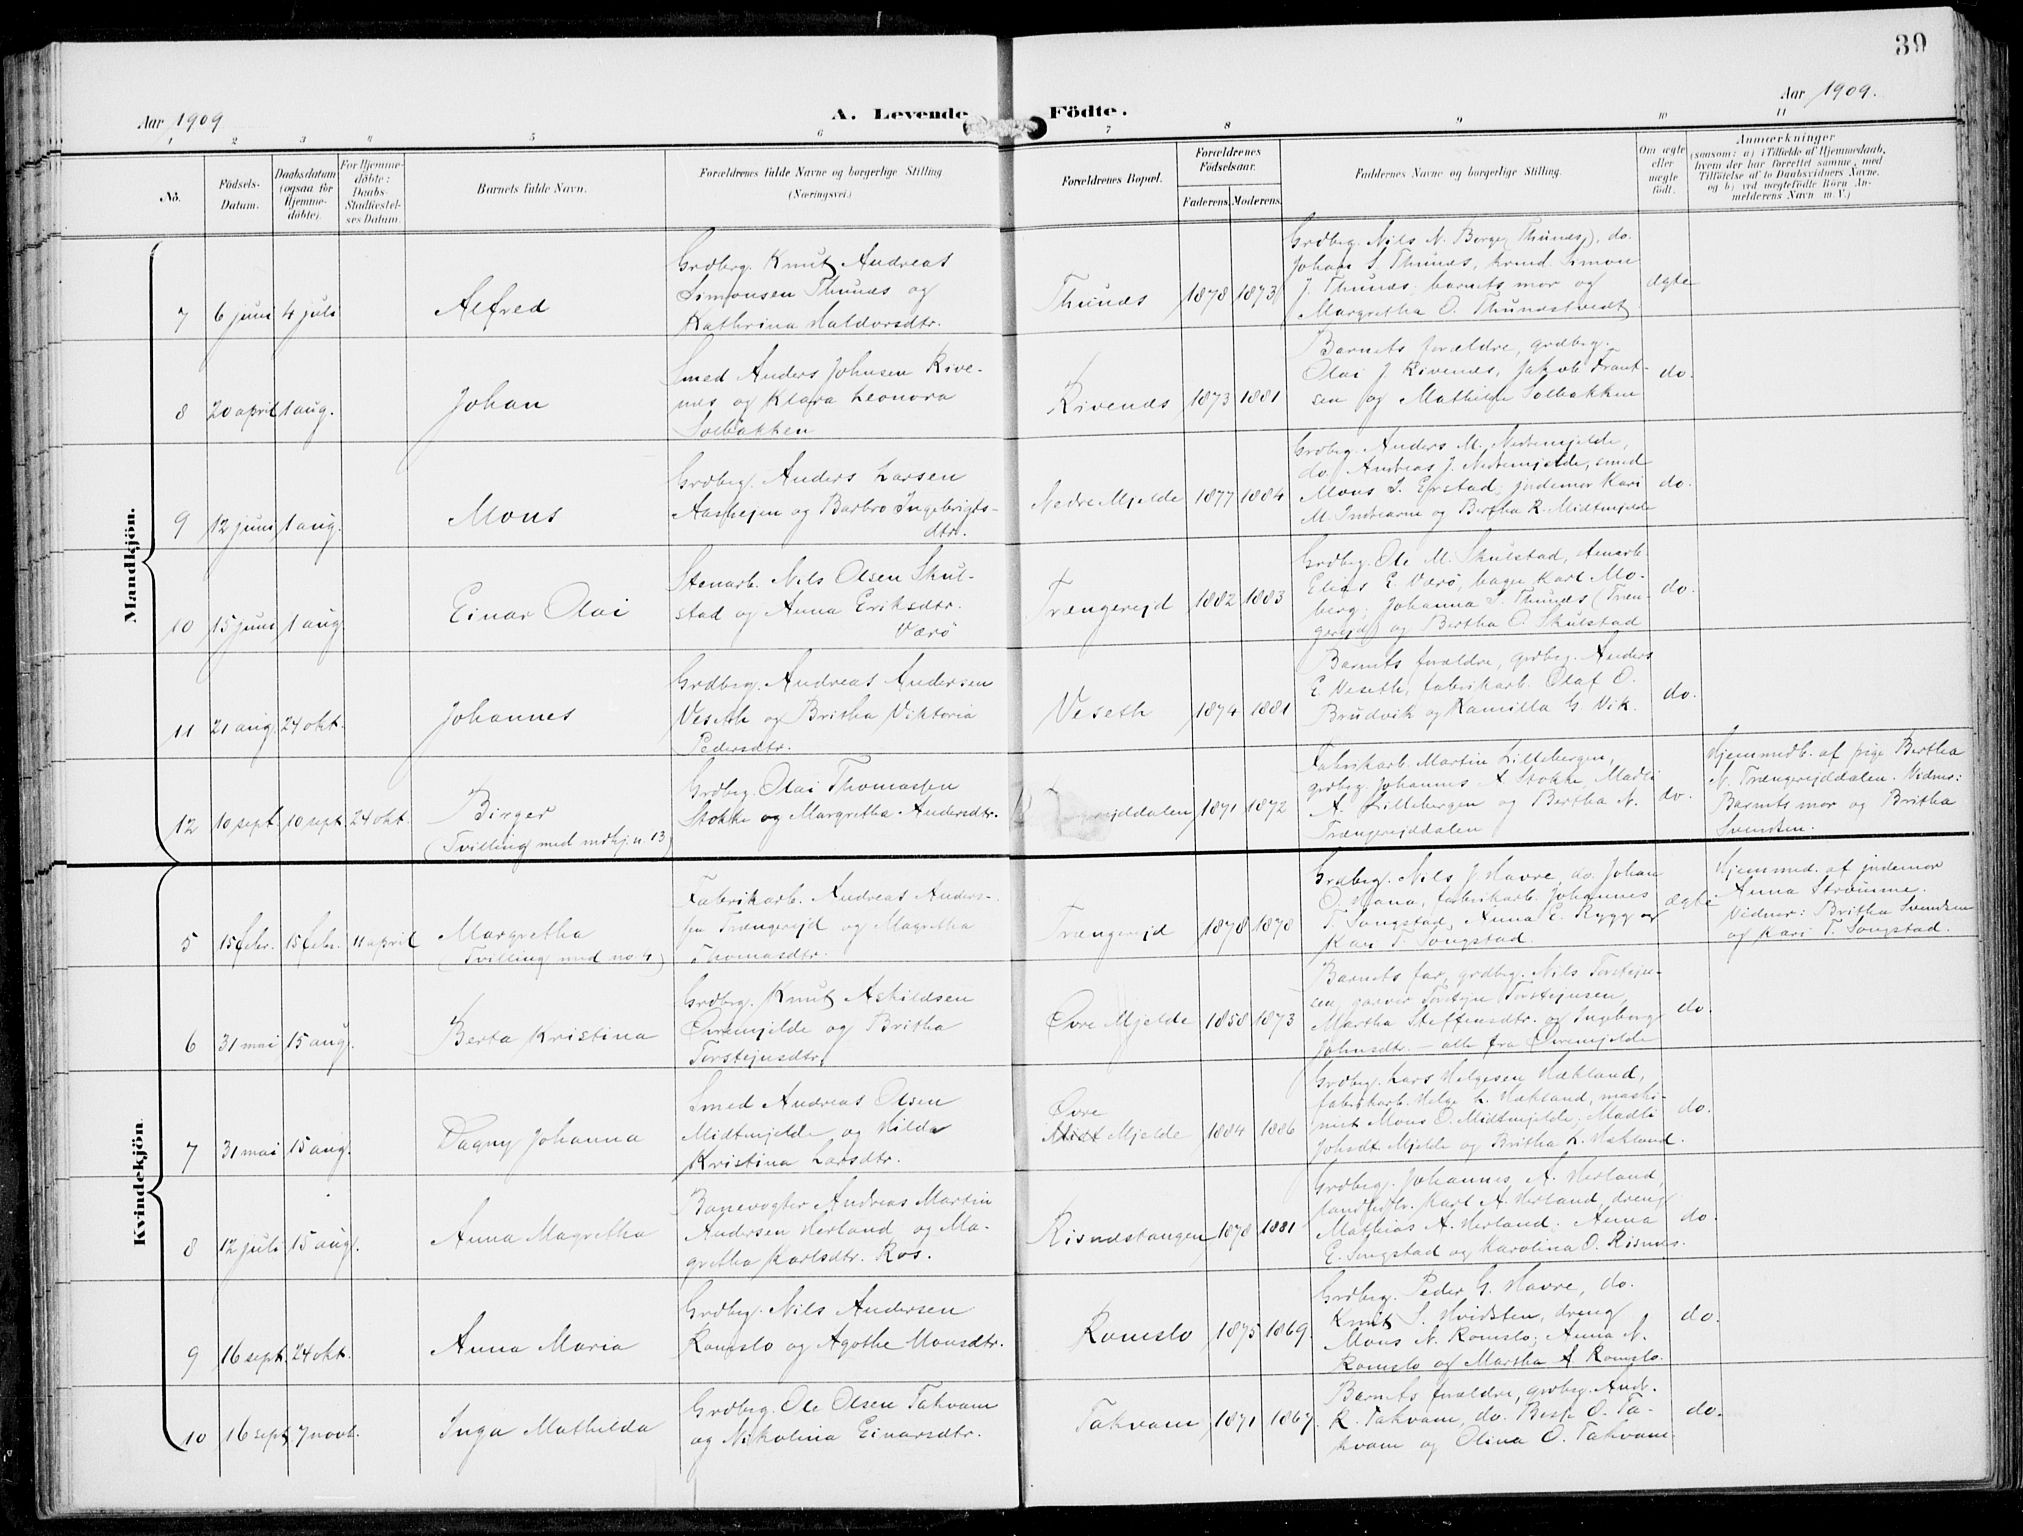 39
Aar 1909
A. Levende Födte.
Aar 1909.
1 2 3 4 5 6 7 8 9 10 11
No.
Födsels-
Datum.
Daabsdatum
(ogsaa for
Hjemme-
döbte).
For Hjemme-
döbte:
Daabs-
Stadfæstel-
ses Datum.
Barnets fulde Navn.
Forældrenes fulde Navne og borgerlige Stilling
(Næringsvei.)
Forældrenes Bopæl.
Forældrenes
Födselsaar.
Faderens. Moderens.
Faddernes Navne og borgerlige Stilling.
Om ægte
eller
uægte
födt.
Anmærkninger
(saasom: a) i Tilfælde af Hjemmedaab,
hvem der har forrettet samme, med
Tilföielse af to Daabsvidners Navne,
og b) ved uægtefödte Börn An-
melderens Navn m. V.)
Mandkjön.
7 6 juni 4 juli Alfred
Grdbrg. Knut Andreas
Simonsen Thunæs og
Kathrina Haldorsdtr.
Thunæs 1878 1873
Grdbrg. Nils N. Berge (Thunæs), do.
Johan S. Thunæs, Simon
J. Thunæs, barnets mor og
Margretha O. Thunæstvedt
ægte
8 20 april 1 aug. Johan
Smed Anders Johnsen Rive-
næs og Klara Leonora
Solbakken
Rivenæs 1873 1881
Barnets forældre, grdbrg.
Olai J. Rivenæs, Jakob Frant-
sen og Mathilde Solbakken
do.
9 12 juni 1 aug. Mons
Grdbrg. Anders Larsen
Aashejen og Barbro Ingebrigts-
dtr.
Nedre Mjelde 1877 1884
Grdbrg. Anders M. Nedremjelde,
do. Andreas J. Nedremjelde, smed
Mons J. Erstad, jordemor Kari
M. Indrearne og Bertha R. Midtmjelde
do.
10 15 juni 1 aug. Einar Olai
Stenarb. Nils Olsen Skul-
stad og Anna Eriksdtr.
Værö
Trængerejd 1882 1883
Grdbrg. Ole M. Skulstad, stenarb.
Elias E. Værö, bager Karl Mo-
berg; Johanna S. Thunæs (Træn-
gerejd) og Bertha O. Skulstad
do.
11 21 aug. 24 okt. Johannes
Grdbrg. Andreas Andersen
Veseth og Britha Viktoria
Pedersdtr.
Veseth 1874 1881
Barnets forældre, grdbrg. Anders
E. Veseth, fabrikarb. Olaf O.
Brudvik og Kamilla G. Vik.
do.
12 10 sept. 10 sept. 24 okt. Birger
(Tvilling med mdkj. n. 13)
Grdbrg. Olai Thomassen
Stokke og Margretha Andersdtr.
rejddalen 1871 1872
Fabrikarb. Martin Lillebergen,
grdbrg. Johannes A. Stokke, Madli
A. Lillebergen og Bertha N.
Trængerejddalen
do.
Hjemmedb. af pige Bertha
N. Trængerejddalen. Vidner:
Barnets mor og Britha
Svendsen.
Kvindekjön.
5 15 febr. 15 febr. 11 april Margretha
(Tvilling med no. 4)
Fabrikarb. Andreas Anders-
sen Trængerejd og Magretha
Thomasdtr.
Trængerejd 1878 1878
Grdbrg. Nils J. Havre, do. Johan
O. Mana, fabrikarb. Johannes
T. Songstad, Anna E. Rygg og
Kari T. Songstad.
ægte
Hjemmed. af jordemor
Anna Strömme.
Vidner: Britha Svendsen
og Kari T. Songstad.
6 31 mai 15 aug. Berta Kristina
Grdbrg. Knut Askildsen
Övremjelde og Britha
Torstejnsdtr.
Övre Mjelde 1858 1873
Barnets far, grdbrg. Nils Torstejn-
sen, garver Torstejn Torstejnsen,
Martha Steffensdtr. og Ingeborg
Johnsdtr. – alle fra Övremjelde
do.
7 31 mai 15 aug. Dagny Johanna
Smed Andreas Olsen
Midtmjelde og Hilda
Kristina Larsdtr.
Övre
Midt Mjelde 1884 1886
Grdbrg. Lars Helgesen Hækland,
fabrikarb. Helge L. Hækland, maski-
nist Mons O. Midtmjelde; Madli
Johsdt. Mjelde og Britha L. Hækland.
do.
8 12 juli 15 aug. Anna Magretha
Banevogter Andreas Martin
Andersen Herland og Ma-
gretha Karlsdtr. Ros.
Risnæstangen 1878 1881
Grdbrg. Johannes A. Herland,
Karl A. Herland, dreng
Mathias A. Herland. Anna
E. Songstad og Karolina O. Risnæs.
do.
9 16 sept. 24 okt. Anna Maria
Grdbrg. Nils Andersen
Romslo og Agathe Monsdtr.
Romslo 1875 1869.
Grdbrg. Peder G. Havre, do.
Knut S. Hvidsten, dreng
Mons N. Romslo; Anna N.
Romslo og Martha A. Romslo.
do.
10 16 sept. 7 novbr. Inga Mathilda
Grdbrg. Ole Olsen Takvam
og Nikolina Einarsdtr.
Takvam 1871 1867
Barnets forældre, grdbrg. Andr.
K. Takvam, do. O. Ta-
kvam og Olina O. Takvam
do.